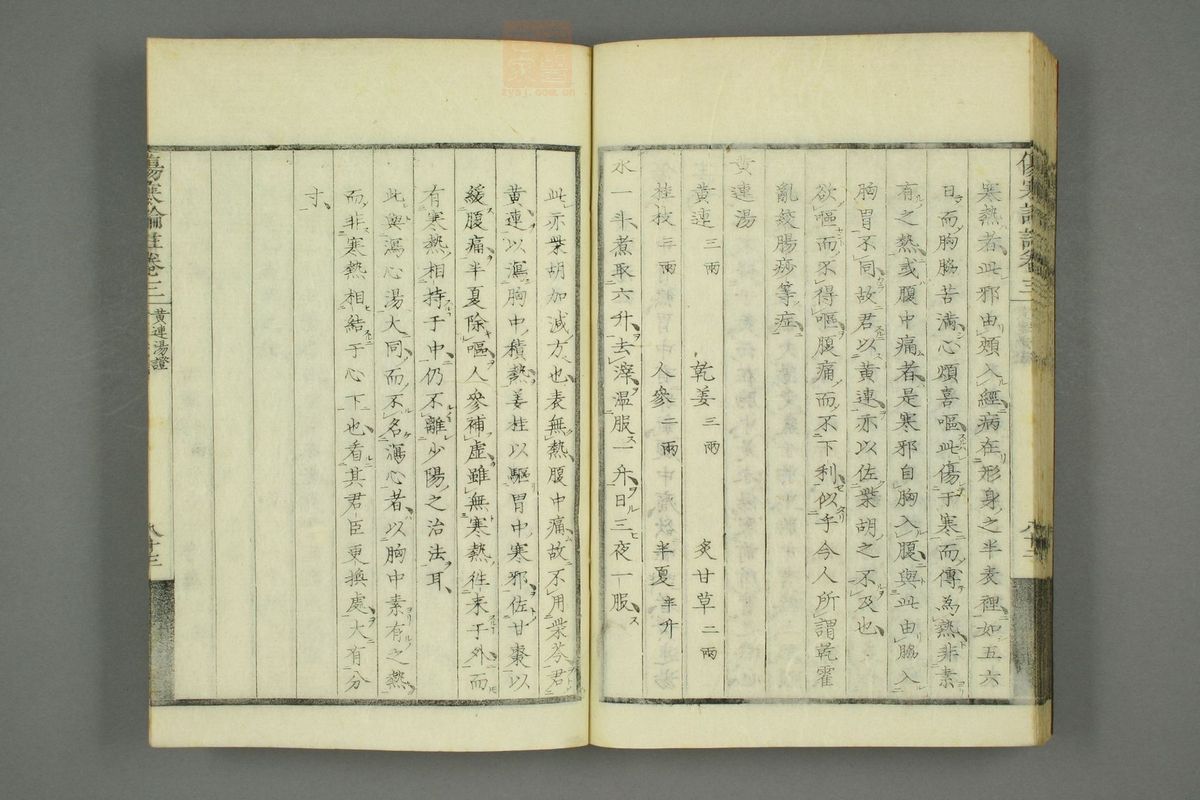 寒熱者此邪由頰入經病在形身之半表裡如五六
日而胸脇苦滿心煩喜嘔此傷于寒而傳為熱非素
有之熱或腹中痛者是寒邪自胸入腹與此由脇入
胸胃不同故君以黃連亦以佐柴胡之不及也
欲嘔而不得嘔腹痛而不下利似乎今人所謂乾霍
亂絞腸痧等症
黃連湯
黃連三兩 乾姜三兩 炙甘草二兩
桂枝三兩 人參二兩 半夏半升
水一斗煮取六升去滓溫服一升日三夜一服
此亦柴胡加減方也表無熱腹中痛故不用柴芩君
黃連以瀉胸中積熱姜桂以驅胃中寒邪佐甘棗以
緩腹痛半夏除嘔人參補虛雖無寒熱徃来于外而
有寒熱相持于中仍不離少陽之治法耳
此與瀉心湯大同而不名瀉心者以胸中素有之熱
而非寒熱相結于心下也看其君臣更換處大有分
寸
傷寒論註卷三 黃連湯證 八十三
zysj.com.cn